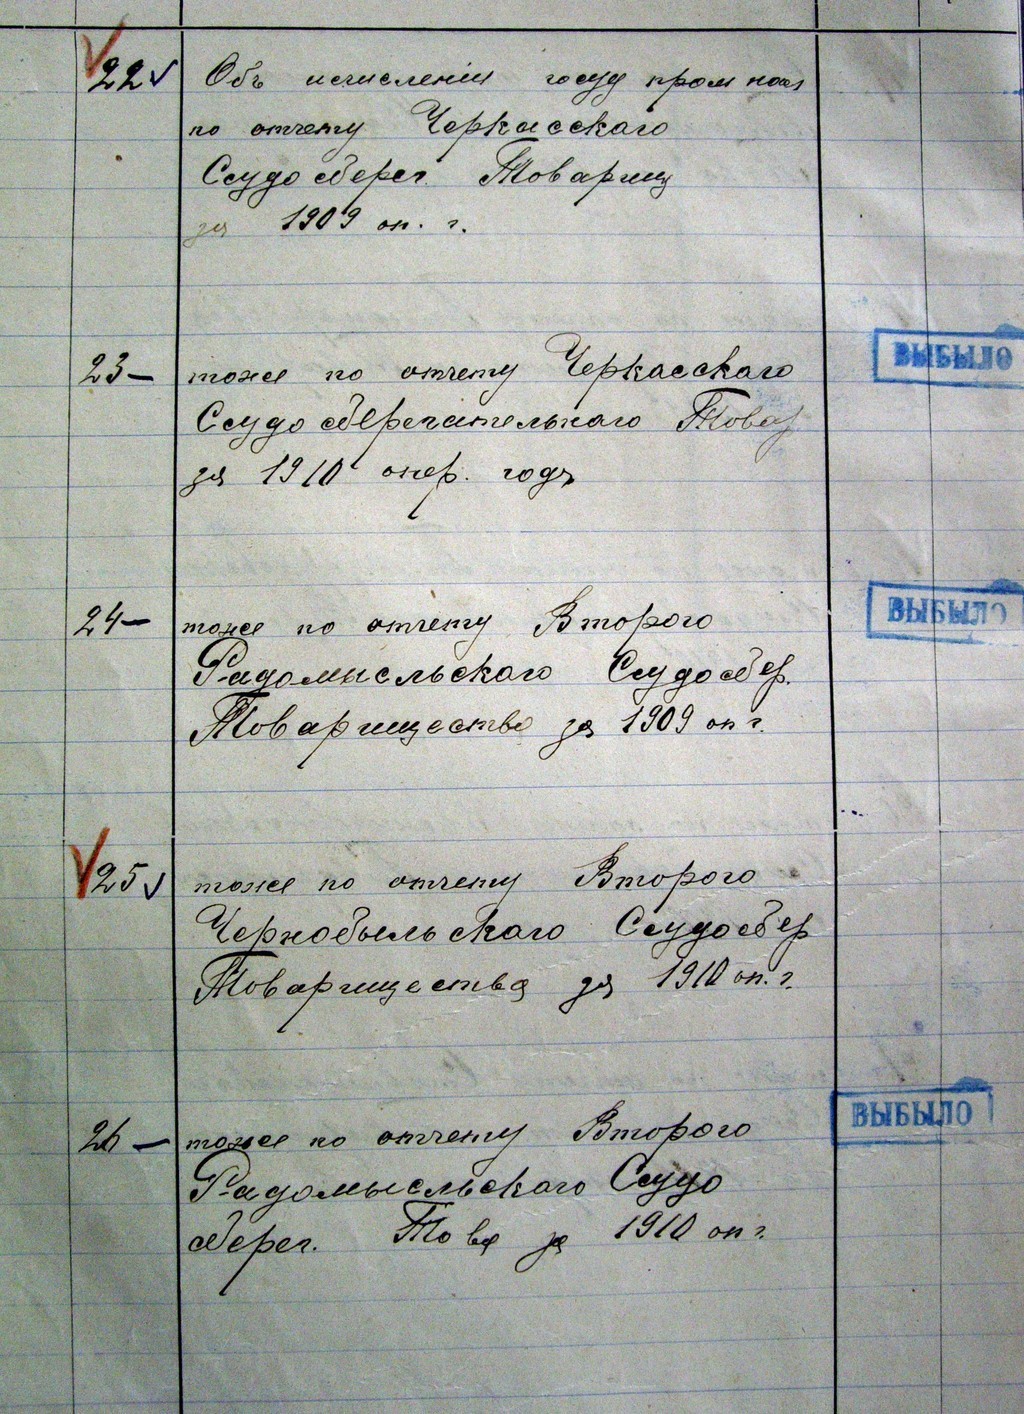 22 Объ исчисленіи госуд пром нал
по отчету Черкасскаго
Ссудо сберег. Товарищ
за 1909 оп. г.
23 тоже по отчету Черкасскаго ВЫБЫЛО
Ссудо сберегательнаго Товар
за 1910 опер. годъ
24 тоже по отчету Второго ВЫБЫЛО
Радомысльскаго Ссудосбер.
Товарищество за 1909 оп г.
25 тоже по отчету Второго
Чернобыльскаго Ссудосбер
Товарищества за 1910 оп. г.
26 тоже по отчету Второго ВЫБЫЛО
Радомысльскаго Ссудо
сберег. Това за 1910 оп г.